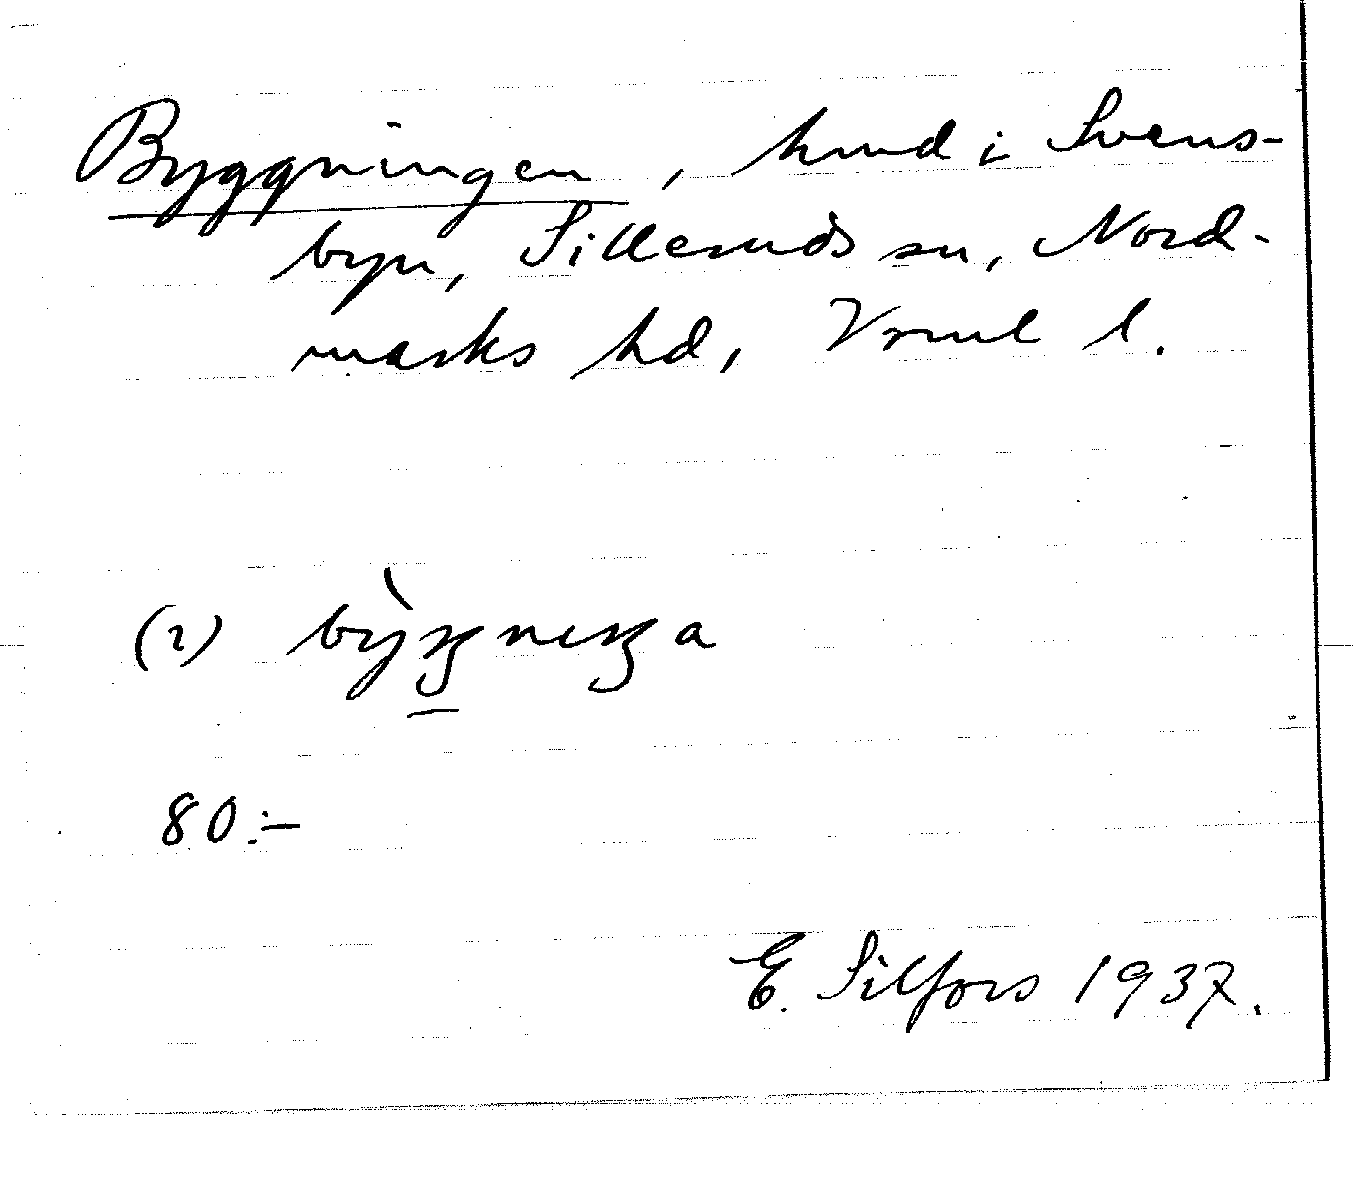 Byggningen, hmd i Svens-
byn, Silleruds sn, Nord-
marks hd, Vrml l.
(2)
80:-
E. Silfors 1937.